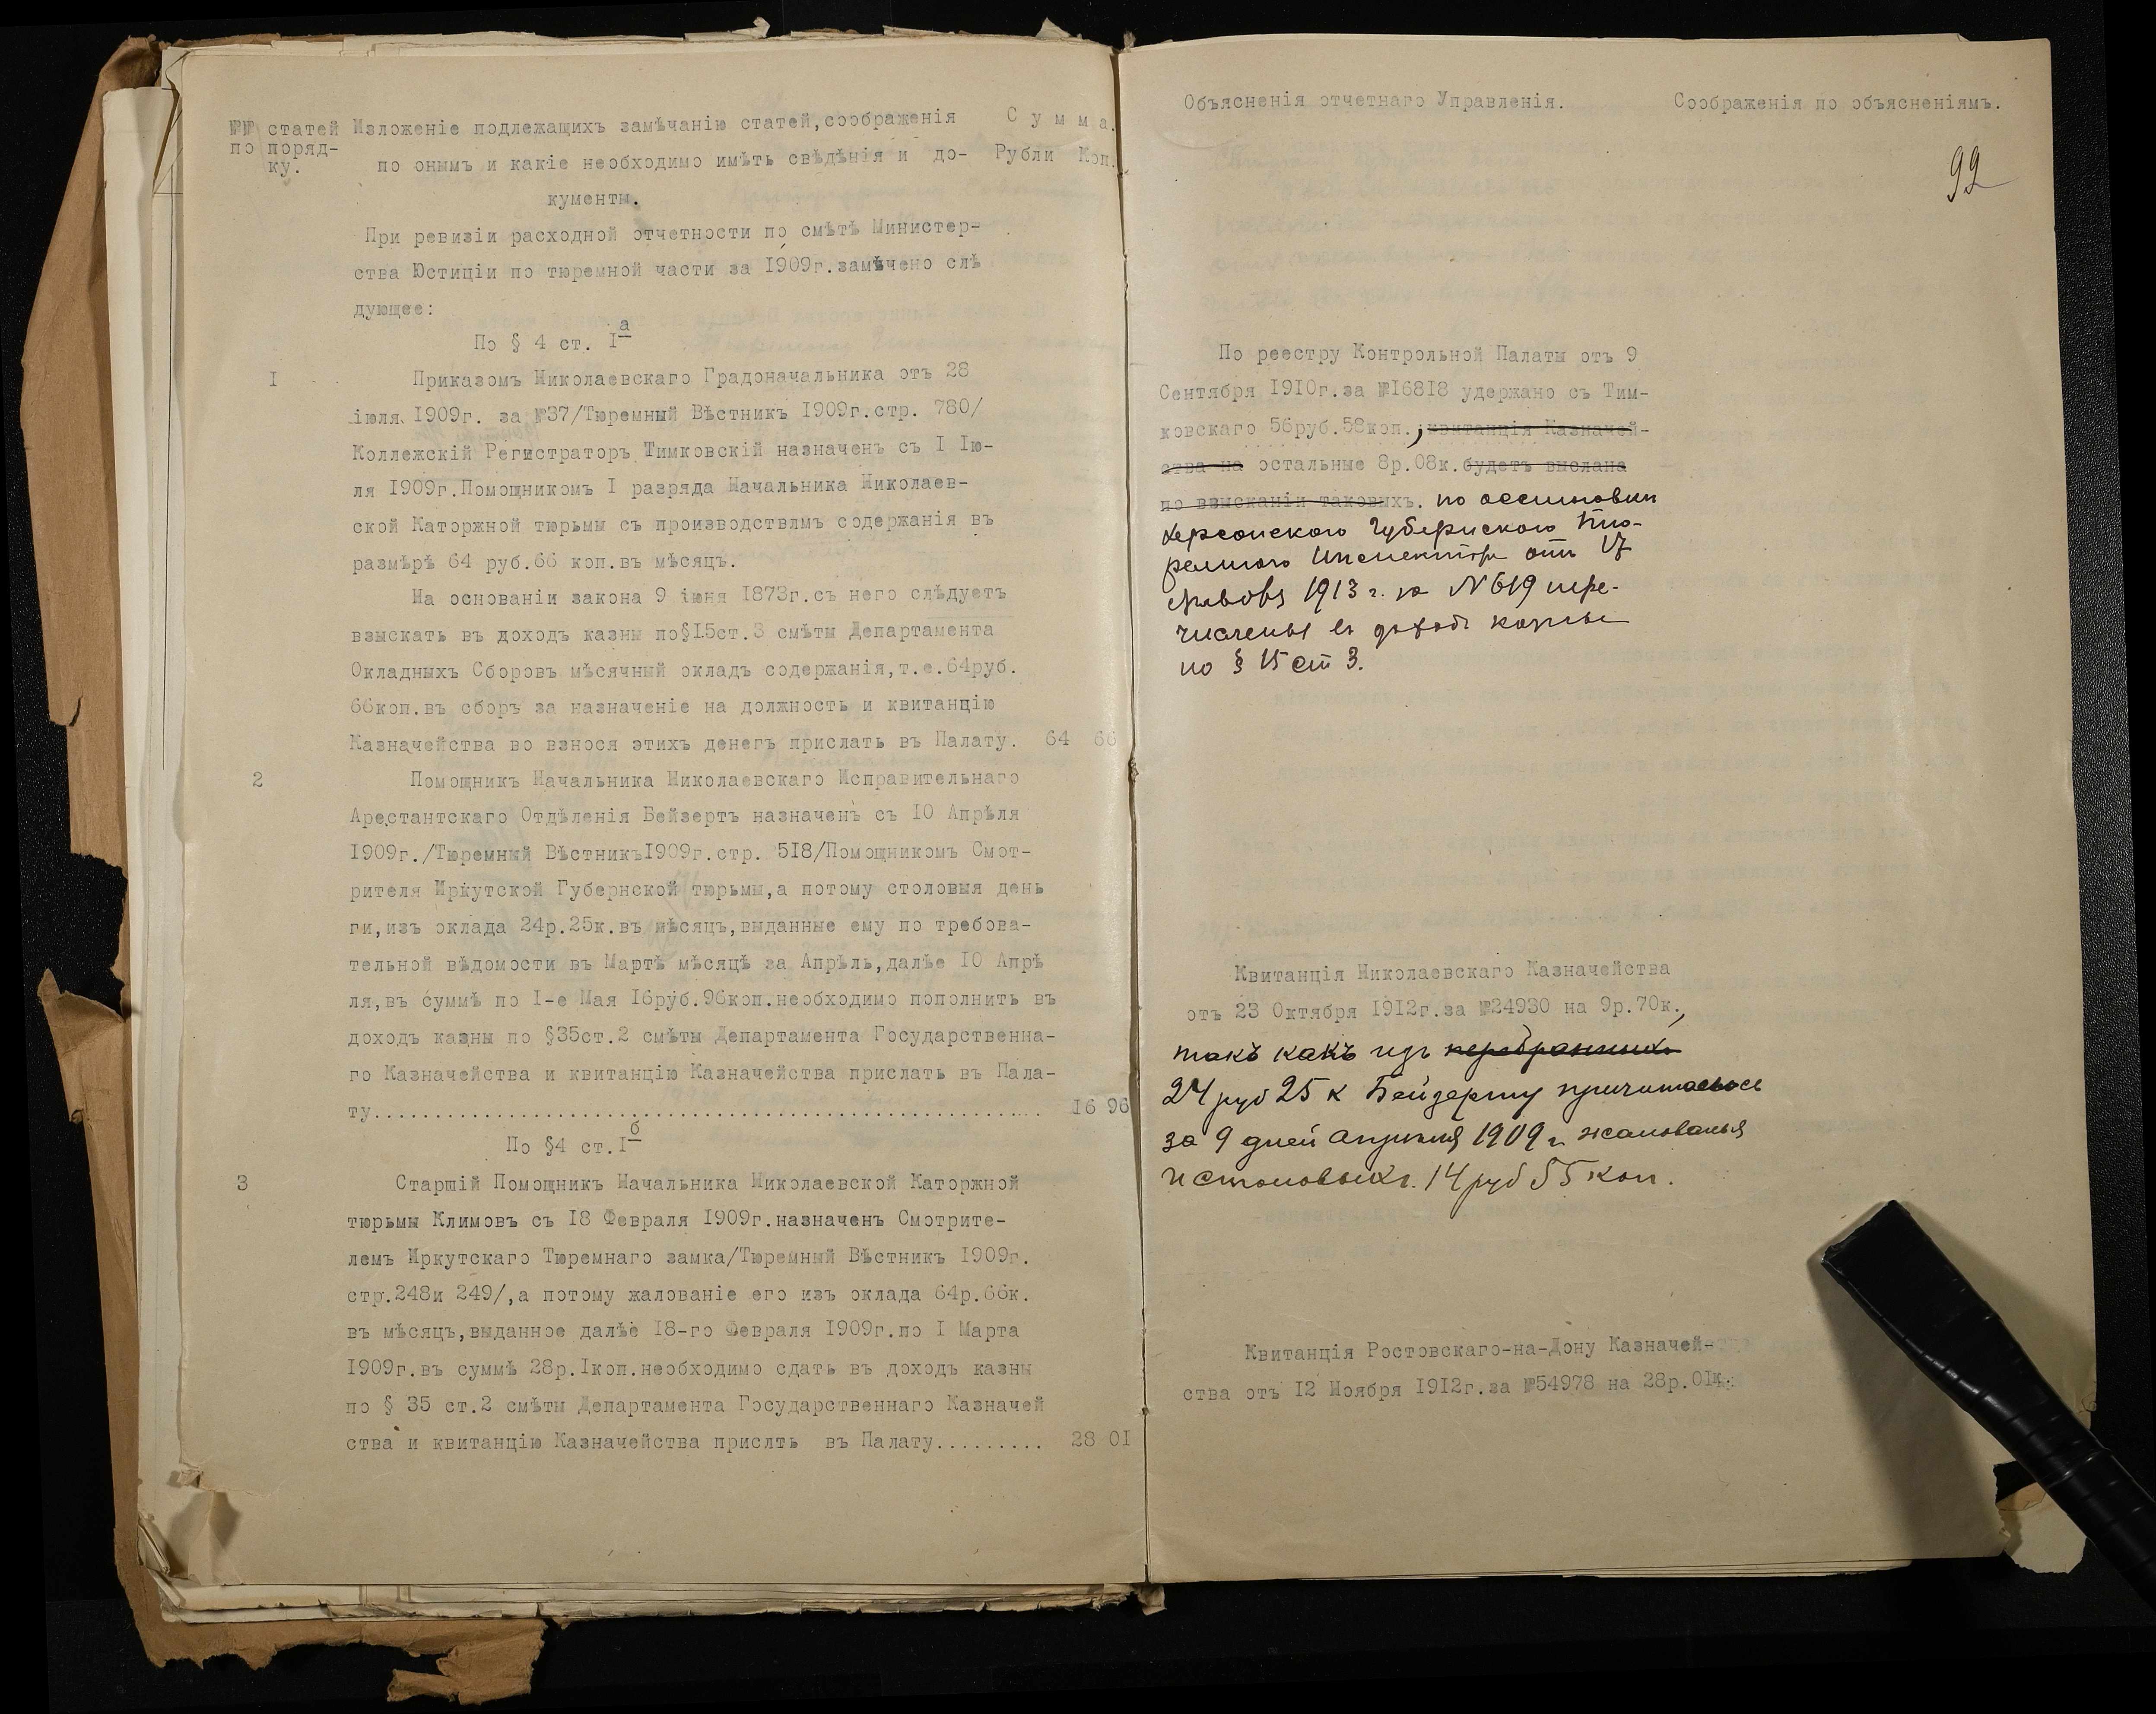 №№ статей Изложеніе подлежащихъ замѣчанію статей,соображенія С у м м а.
по поряд-
ку.
по онымъ и какіе необходимо имѣть свѣдѣнія и до- Рубли Коп.
кументы.
При ревизіи расходной отчетности по смѣтѣ Министер-
ства Юстиціи по тюремной части за 1909г.замѣчено слѣ
дующее:
По § 4 ст. I а
I Приказомъ Николаевскаго Градоначальника отъ 28
іюля 1909г. за №37/Тюремный Вѣстникъ 1909г.стр. 780/
Коллежскій Регистраторъ Тимковскій назначенъ съ I Ію-
ля 1909г.Помощникомъ I разряда Начальника Николаев-
ской Каторжной тюрьмы съ производствлмъ содержанія въ
размѣрѣ 64 руб.66 коп.въ мѣсяцъ.
На основаніи закона 9 іюня 1873г.съ него слѣдуетъ
взыскать въ доходъ казны по§15ст.3 смѣты Департамента
Окладныхъ Сборовъ мѣсячный окладъ содержанія,т.е.64руб.
66коп.въ сборъ за назначеніе на должность и квитанцію
Казначейства во взнося этихъ денегъ прислать въ Палату. 64 66
2 Помощникъ Начальника Николаевскаго Исправительнаго
Арестантскаго Отдѣленія Бейзертъ назначенъ съ 10 Апрѣля
1909г./Тюремный Вѣстникъ1909г.стр. 518/Помощникомъ Смот-
рителя Иркутской Губернской тюрьмы,а потому столовыя день
ги,изъ оклада 24р.25к.въ мѣсяцъ,выданные ему по требова-
тельной вѣдомости въ Мартѣ мѣсяцѣ за Апрѣль,далѣе 10 Апрѣ
ля,въ суммѣ по 1-е Мая 16руб.96коп.необходимо пополнить въ
доходъ казны по §35ст.2 смѣты Департамента Государственна-
го Казначейства и квитанцію Казначейства прислать въ Пала-
ту.................................................... 16 96
По §4 ст.I б
3 Старшій Помощникъ Начальника Николаевской Каторжной
тюрьмы Климовъ съ 18 Февраля 1909г.назначенъ Смотрите-
лемъ Иркутскаго Тюремнаго замка/Тюремный Вѣстникъ 1909г.
стр.248и 249/,а потому жалованіе его изъ оклада 64р.66к.
въ мѣсяцъ,выданное далѣе 18-го Февраля 1909г.по I Марта
1909г.въ суммѣ 28р.1коп.необходимо сдать въ доходъ казны
по § 35 ст.2 смѣты Департамента Государственнаго Казначей
ства и квитанцію Казначейства прислть въ Палату......... 28 01
Объясненія отчетнаго Управленія. Соображенія по объясненіямъ.
92
По реестру Контрольной Палаты отъ 9
Сентября 1910г.за №16818 удержано съ Тим-
ковскаго 56руб.58коп., квитанція Казначей-
ства на остальные 8р.08к.будетъ выслана
по взысканіи таковыхъ. по ассигновки
Херсонского Губернского Тю-
ремного Инспектора отъ 17
1913 г. за N 619 пере-
числены въ доходъ казны
по § 15 ст 3.
Квитанція Николаевскаго Казначейства
отъ 23 Октября 1912г.за №24930 на 9р.70к.,
такъ какъ изъ перебранныхъ
24 руб 25 к Бейзерту причиталось
за 9 дней апрѣля 1909 г. жалованья
и столовыхъ. 14 руб 55 коп.
Квитанція Ростовскаго-на-Дону Казначей-
ства отъ 12 Ноября 1912г.за №54978 на 28р.01к.